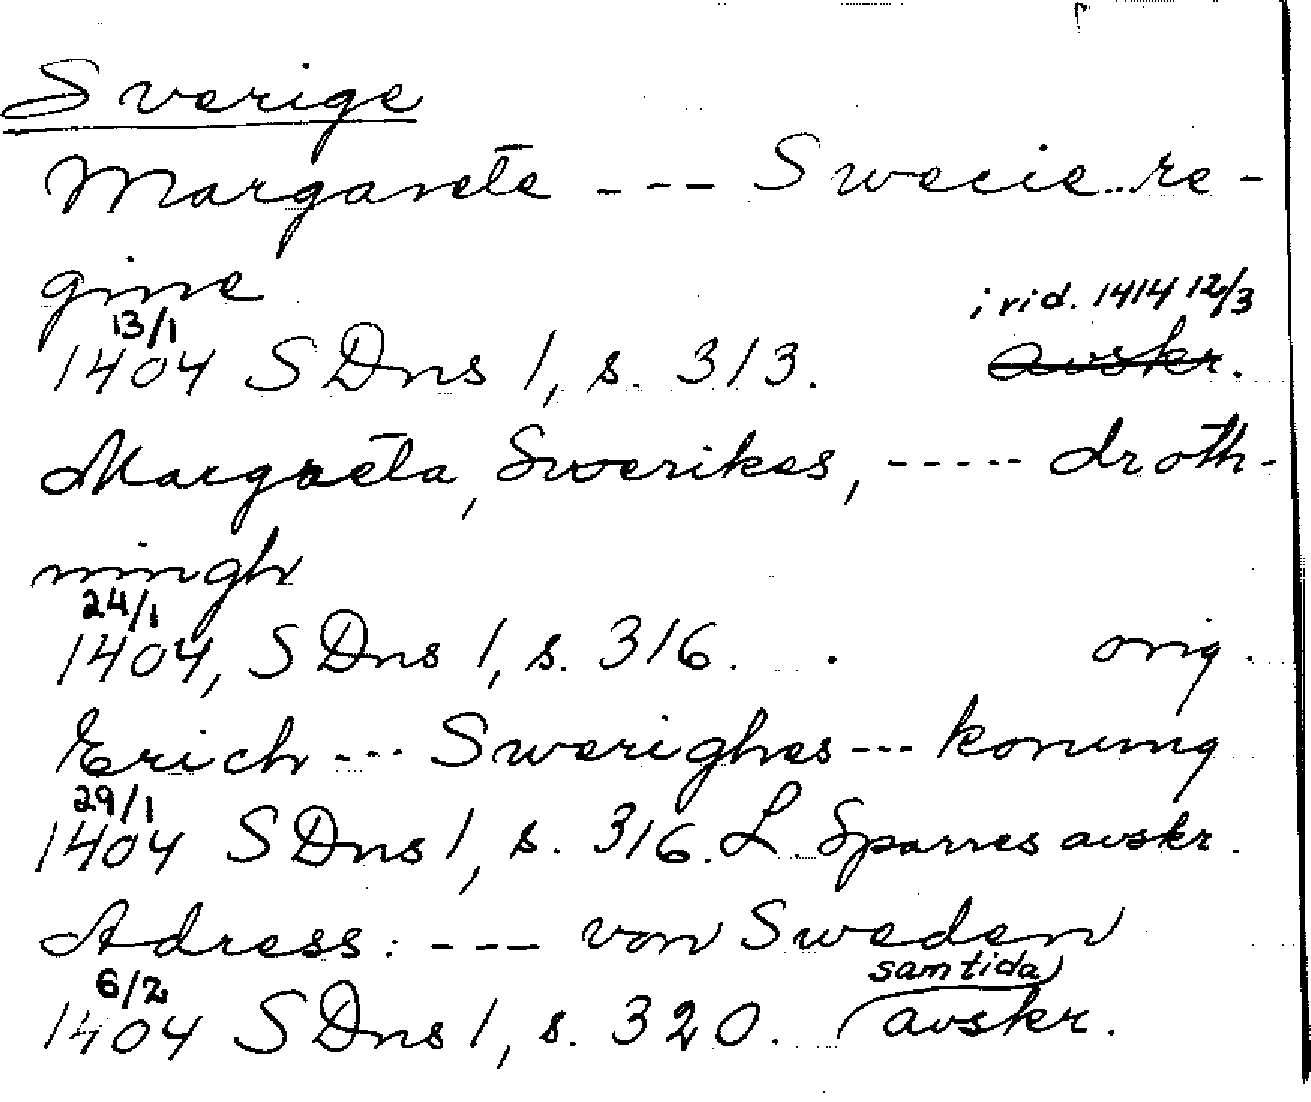 Sverige
Margarete --- Swecie re-
gine
i vid. 1414 12/3
13/1
1404 SDns 1, s. 313. avskr.
Margreta, Swerikes, ----- droth-
ningh
24/1
1404, SDns 1, s. 316. orig.
Erich --- Swerighes --- konung
29/1
1404 SDns 1, s. 316. L. Sparres avskr.
Adress: --- von Sweden
6/2 samtida
1404 SDns 1, s. 320. avskr.